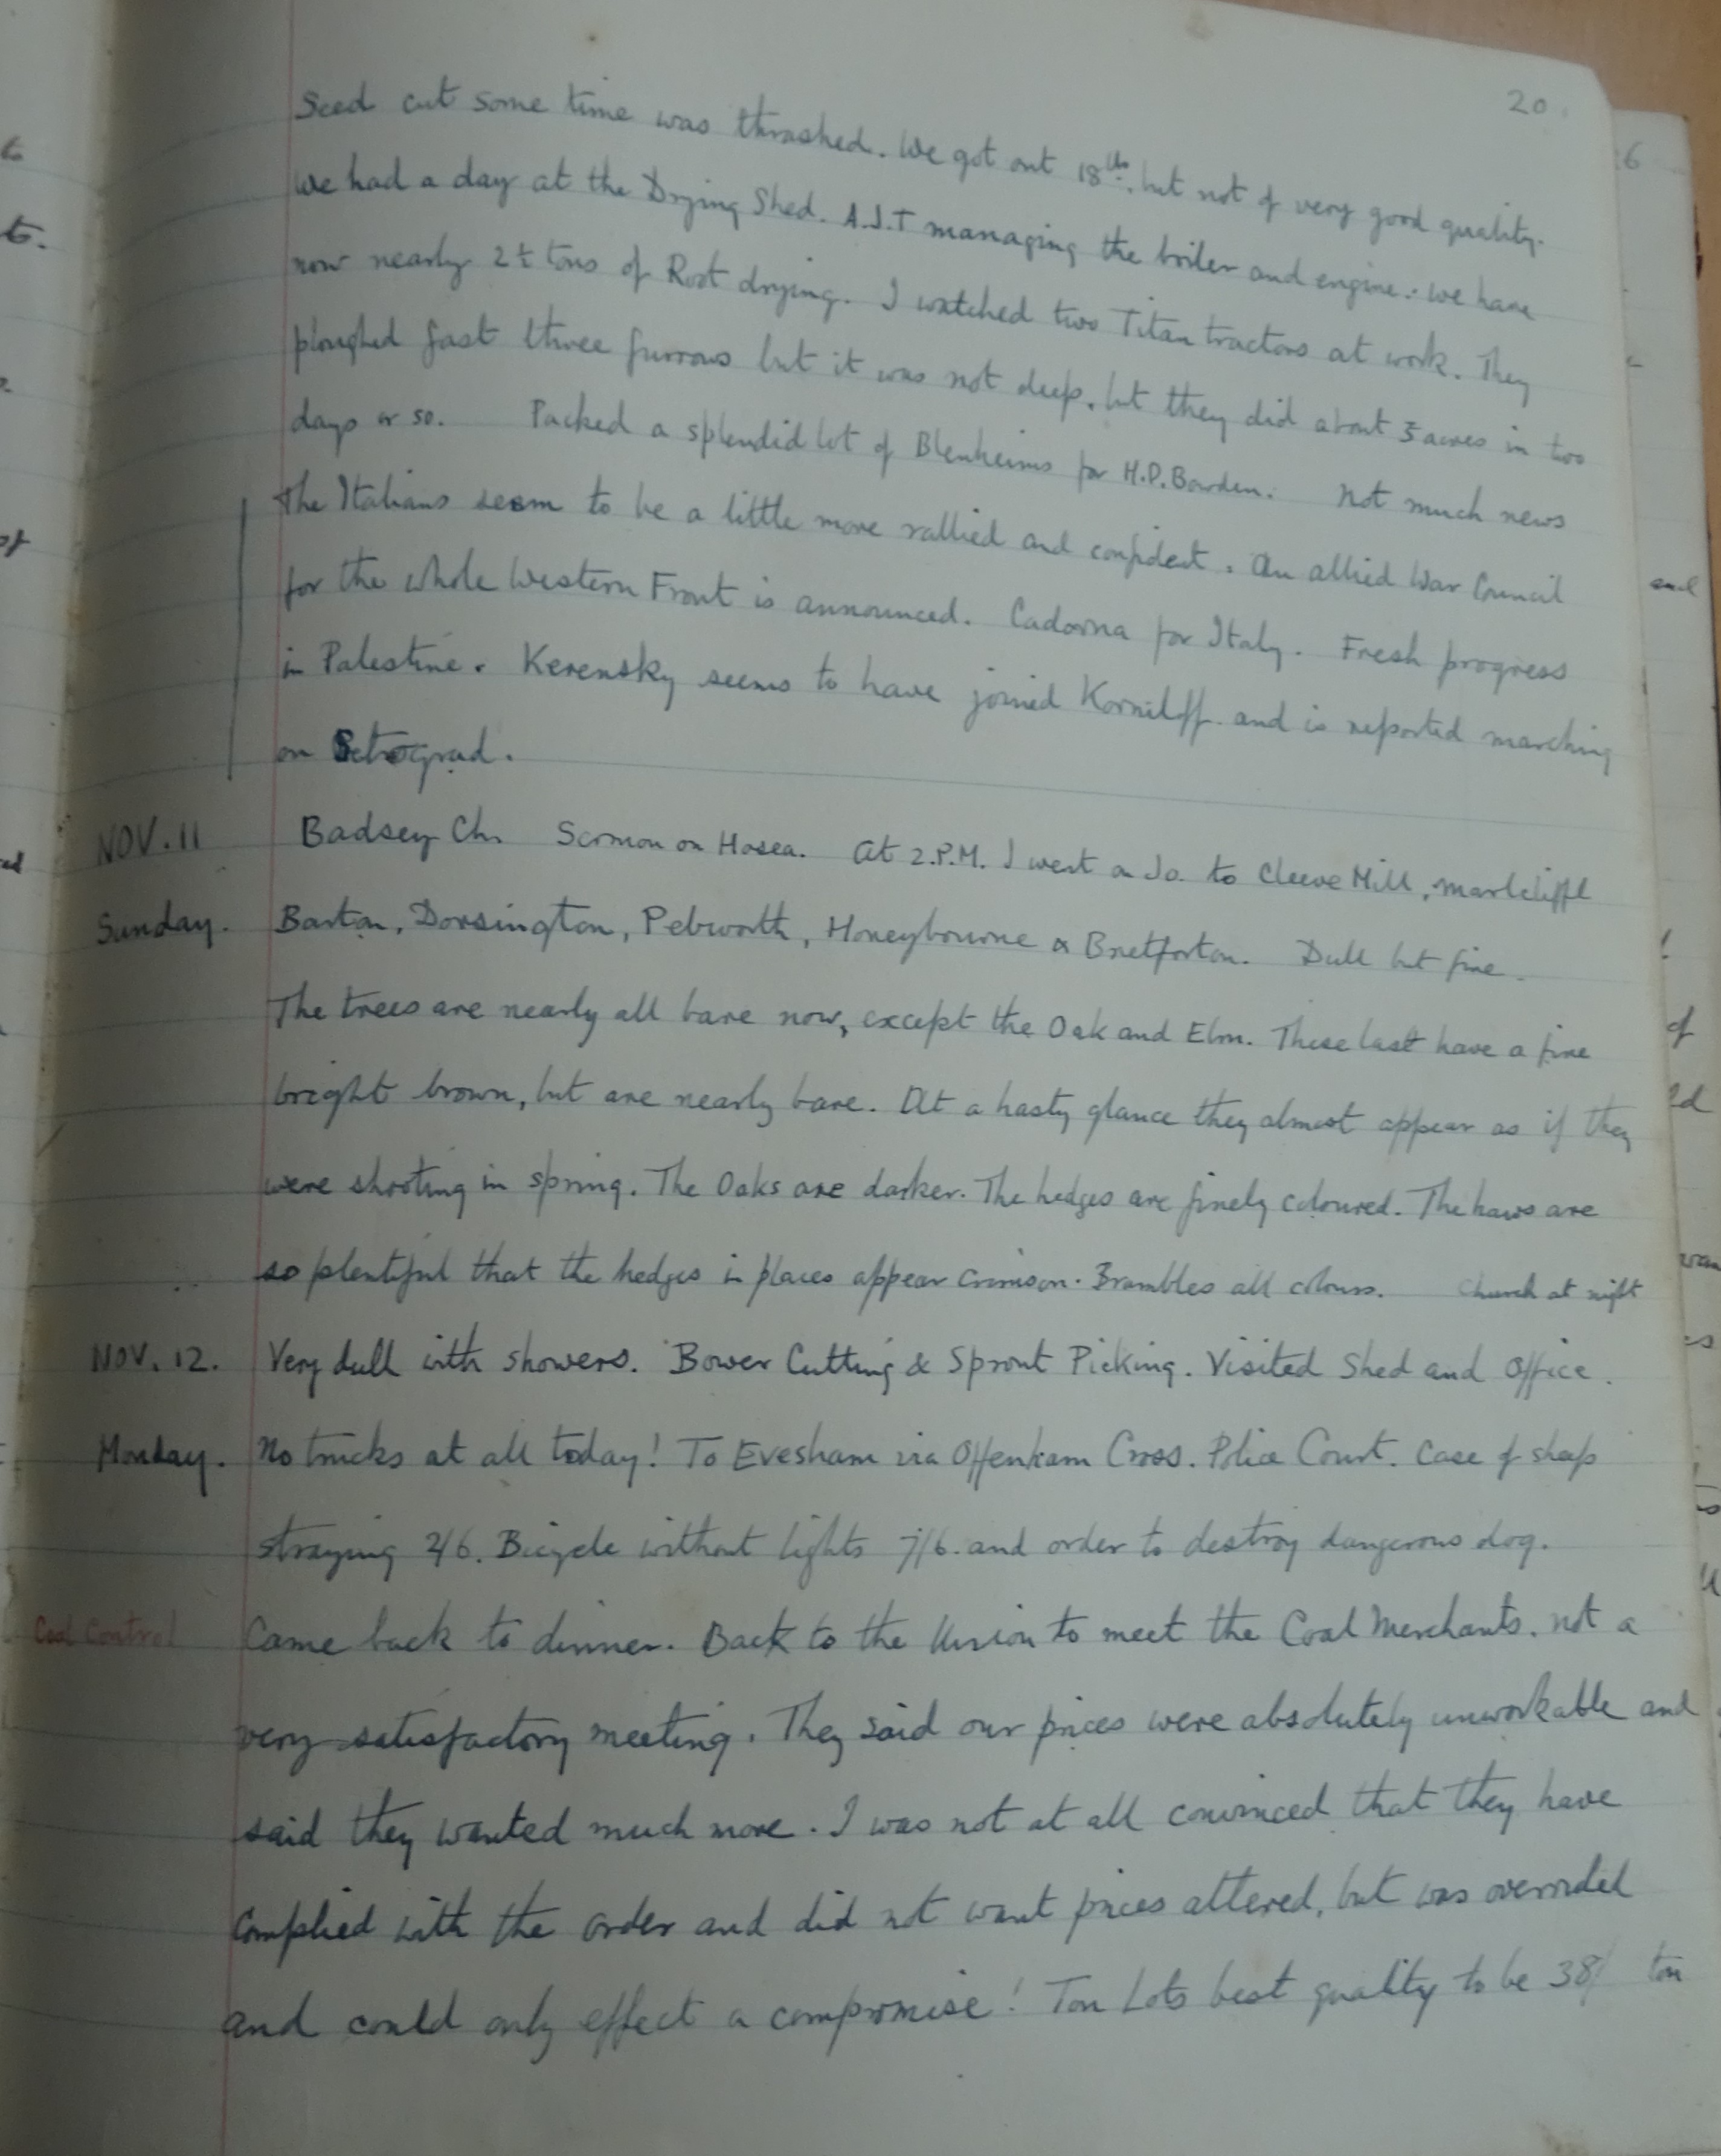 20.
Seed cut some time was thrashed. We got out 18 lbs. but not of very good quality.
We had a day at the Drying Shed. A.J.T managing the boiler and engine. We have
now nearly 2½ tons of Root drying. I watched two Titan tractors at work. They
ploughed fast three furrows but it was not deep, but they did about 5 acres in two
days or so. Packed a splendid lot of Blenheims for H.P. Barden. Not much news
The Italians seem to be a little more rallied and confident. An allied War Council
for the whole Western Front is announced. Cadorna for Italy. Fresh progress
in Palestine. Kerensky seems to have joined Korniloff and is reported marching
on Petrograd.
NOV. 11 Badsey Ch. Sermon on Hosea. At 2.P.M. I went on Jo. to Cleeve Mill, Marlcliffe
Sunday. Barton, Dorsington, Pebworth, Honeybourne & Bretforton. Dull but fine.
The trees are nearly all bare now, except the Oak and Elm. These last have a fine
bright brown, but are nearly bare. At a hasty glance they almost appear as if they
were shooting in spring. The Oaks are darker. The hedges are finely coloured. The haws are
so plentiful that the hedges in places appear crimson. Brambles all colours. Church at night
NOV. 12. Very dull with showers. Bower Cutting & Sprout Picking. Visited Shed and Office.
Monday. No trucks at all today! To Evesham via Offenham Cross. Police Court. Case of sheep
straying 2/6. Bicycle without lights 7/6. and order to destroy dangerous dog.
Coal Control Came back to dinner. Back to the Union to meet the Coal Merchants. not a
very satisfactory meeting. They said our prices were absolutely unworkable and
said they wanted much more. I was not at all convinced that they have
complied with the order and did not want prices altered, but was overruled
and could only effect a compromise! Ton Lots best quality to be 38/ ton